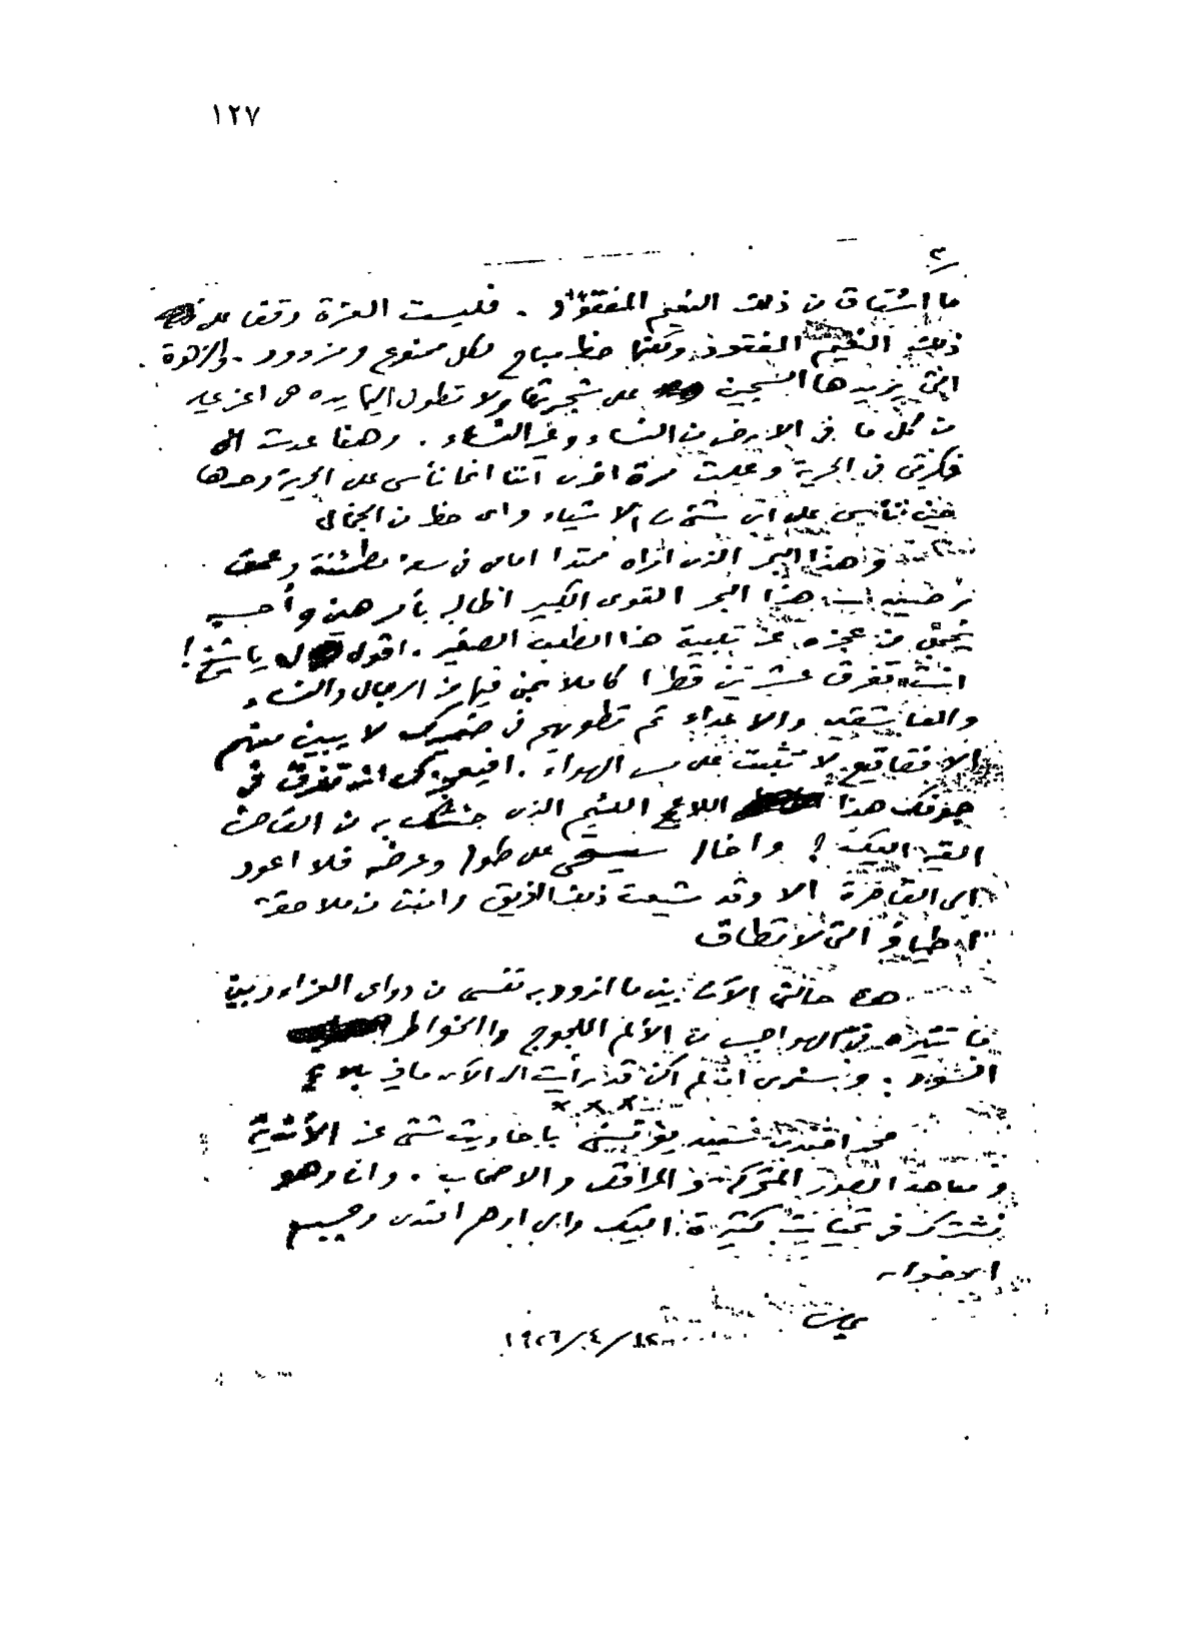 ١٢٧
٣
ما اشتاق من ذلك النعيم المفقود . فليست العزة وقفا على
ذلك النعيم المفقود ولكنها حظ مباح لكل ممنوع ومزدود . والزهرة
التي يريدها السجين على شجرتها ولا تطول اليها يده هي اعز عليه
من كل ما في الارض من النساء وغير النساء . وهنا عدت الى
فكرتي في الحرية وعلمت مرة اخرى اننا انما نأسى على الحرية وحدها
حين نأسى على اي شيء من الاشياء واي حظ من الجمال
وهذا البحر الذي اراه ممتدا امامي في سعة مطمئنة وعمق
هذا البحر القوي الكبير اطالبه بأمر هين وأحسبه
يخجل من عجزه عن تلبية هذا الطلب الصغير . اقول له يا شيخ !
انت تغرق عشرين قطرا كاملا بمن فيها من الرجال والنساء
والعاشقين والاعداء ثم تطويهم في ضميرك لا يبين منهم
الا فقاقيع لا تثبت على مس الهواء . افيعييك ان تغرق في
جوفك هذا اللاعج اللئيم الذي جئتك به من القاهرة
القيه اليك ؟ واخال سيستحي على طوله وعرضه فلا اعود
الى القاهرة الا وقد شيعت ذلك الغريق وامنت من ملاحقة
اطيافه التي لا تطاق
هذه حالتي الآن بين ما ازود به نفسي من دواعي العزاء وبين
ما تثيره في الهواجس من الألم اللجوج والخواطر
الشرود . وسترى ان لم اكن قد رأيت الى الآن ما فيه بلاغ
× × ×
محمد افندي سعيد يؤنسني باحاديث شتى عن الأندية
ومعاهد الصور المتحركة والمراقص والاصحاب . وانا وهو
نشترك في تحيات كثيرة اليك والى ادهم افندي وجميع
الاخوان
عباس
١٩٢٦/٤/١٢